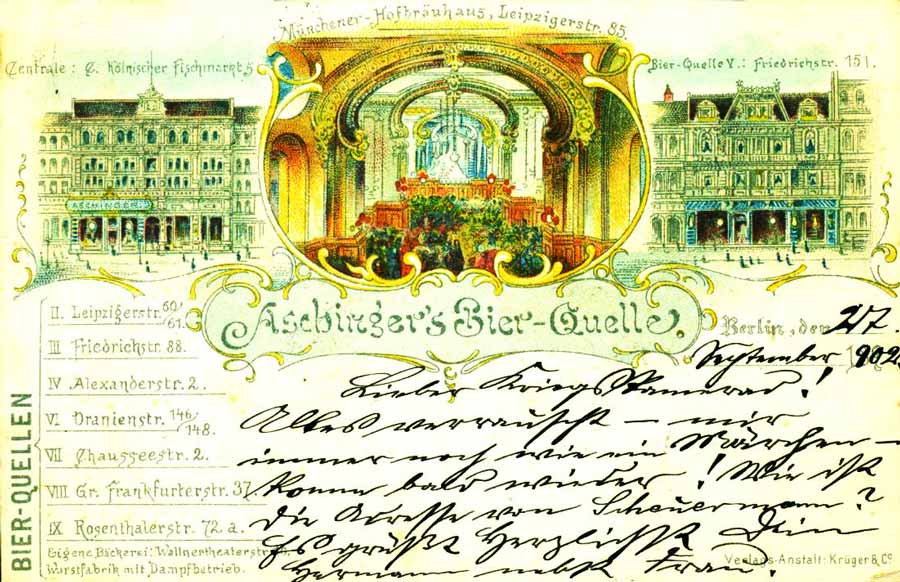 Münchener-Hofbräuhaus, Leipzigerstr. 85.
Centrale: C. Kölnischer Fischmarkt 5
Bier-Quelle V.: Friedrichstr. 151.
ASCHINGER'S
Aschinger's Bier-Quelle.
Berlin, den 27.
September 1902
BIER-QUELLEN
II. Leipzigerstr. 60/61.
III Friedrichstr. 88.
IV Alexanderstr. 2.
VI Oranienstr. 146/148.
VII Chausseestr. 2.
VIII Gr. Frankfurterstr. 37.
IX Rosenthalerstr. 72 a.
Eigene Bäckerei: Wallnertheaterstr.
Wurstfabrik mit Dampfbetrieb.
Lieber Kriegskamerad!
Alles verrauscht – mir
immer noch wie ein Märchen –
komme bald wieder! Wie ist
die Adresse von Scheuermann?
Es grüßt Herzlichst Dein
Hermann nebst Frau.
Verlags-Anstalt: Krüger & Co.